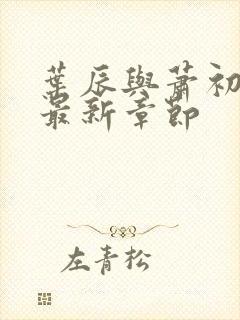 葉辰與蕭初
最新章節
左青松